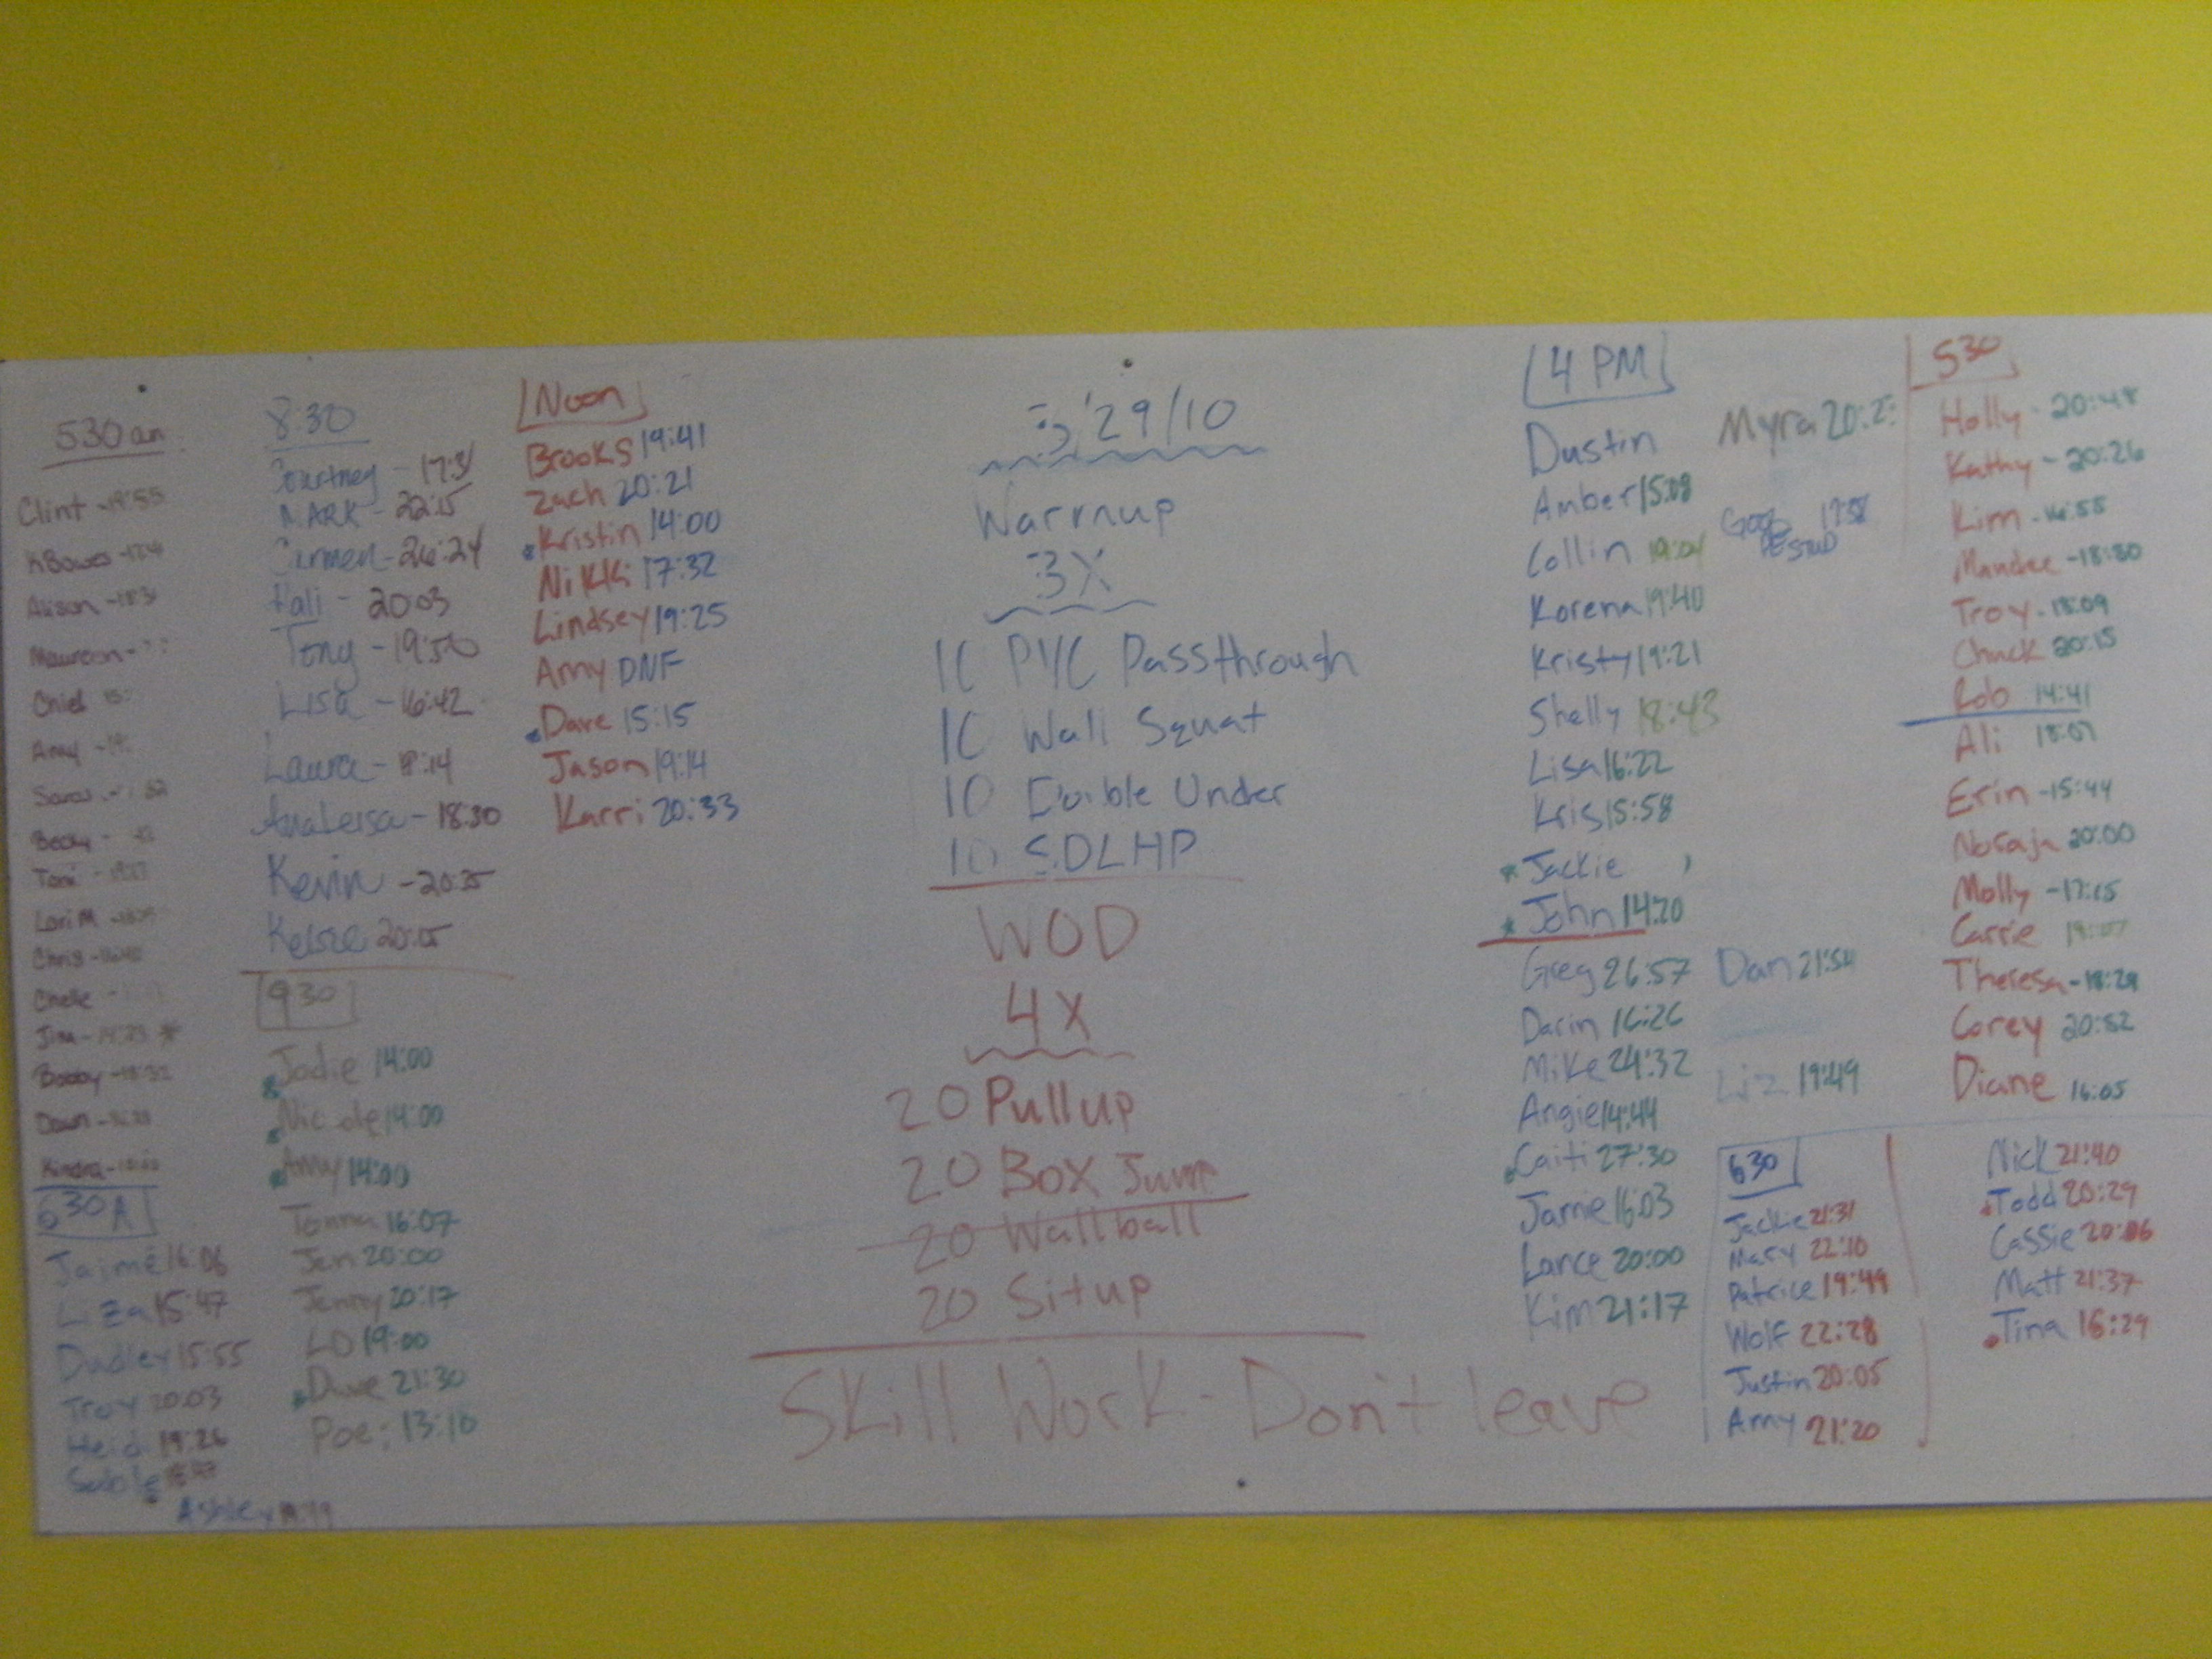 530am
Clint - 19:55
Alison
Maureen -
Chief
Amy
Becky -
Toni
Lori M
Chris
Jim - *
Bobby
Dawn
Kindra
630A
Jaime 16:06
Liza 15:47
Dudley 15:55
Troy 20:03
Heidi 19:26
Ashley
8:30
Courtney -
MARK - 22:15
Carmen - 26:24
- 20:03
Tony - 19:50
Lisa - 16:42
Laura -
- 18:30
Kevin -
Kelsie 20:05
930
Jodie 14:00
Nicole 14:00
Amy 14:00
16:07
Jen 20:00
Jenny 20:17
LD 19:00
Dave 21:30
Poe: 13:18
Noon
Brooks 19:41
Zach 20:21
Kristin 14:00
Nikki 17:32
Lindsey 19:25
Amy DNF
Dave 15:15
Jason 19:14
Karri 20:33
3/29/10
Warmup
3X
10 PVC Passthrough
10 Wall Squat
10 Double Under
10 SDLHP
WOD
4X
20 Pullup
20 Box Jump
20 Wallball
20 Situp
Skill Work - Don't leave
4 PM
Dustin
Amber 15:08
Collin 19:04
Korena 19:40
Kristy 19:21
Shelly 18:43
Lisa 16:22
Kris 15:58
* Jackie
* John 14:20
Greg 26:57
Darin 16:26
Mike 24:32
Angie 14:44
Caiti 27:30
Jamie 16:03
Lance 20:00
Kim 21:17
Myra
Dan 21:54
Liz 19:49
630
Jackie 21:31
Mary 22:10
Patrice 19:49
Wolf 22:28
Justin 20:05
Amy 21:20
Nick 21:40
Todd 20:29
Cassie 20:06
Matt 21:37
Tina 16:29
530
Holly - 20:48
Kathy - 20:26
Kim -
Mandee - 18:30
Troy - 18:09
Chuck 20:15
Rob 14:41
Ali 18:07
Erin - 15:44
20:00
Molly - 17:15
Carrie
Theresa - 18:29
Corey 20:52
Diane 16:05